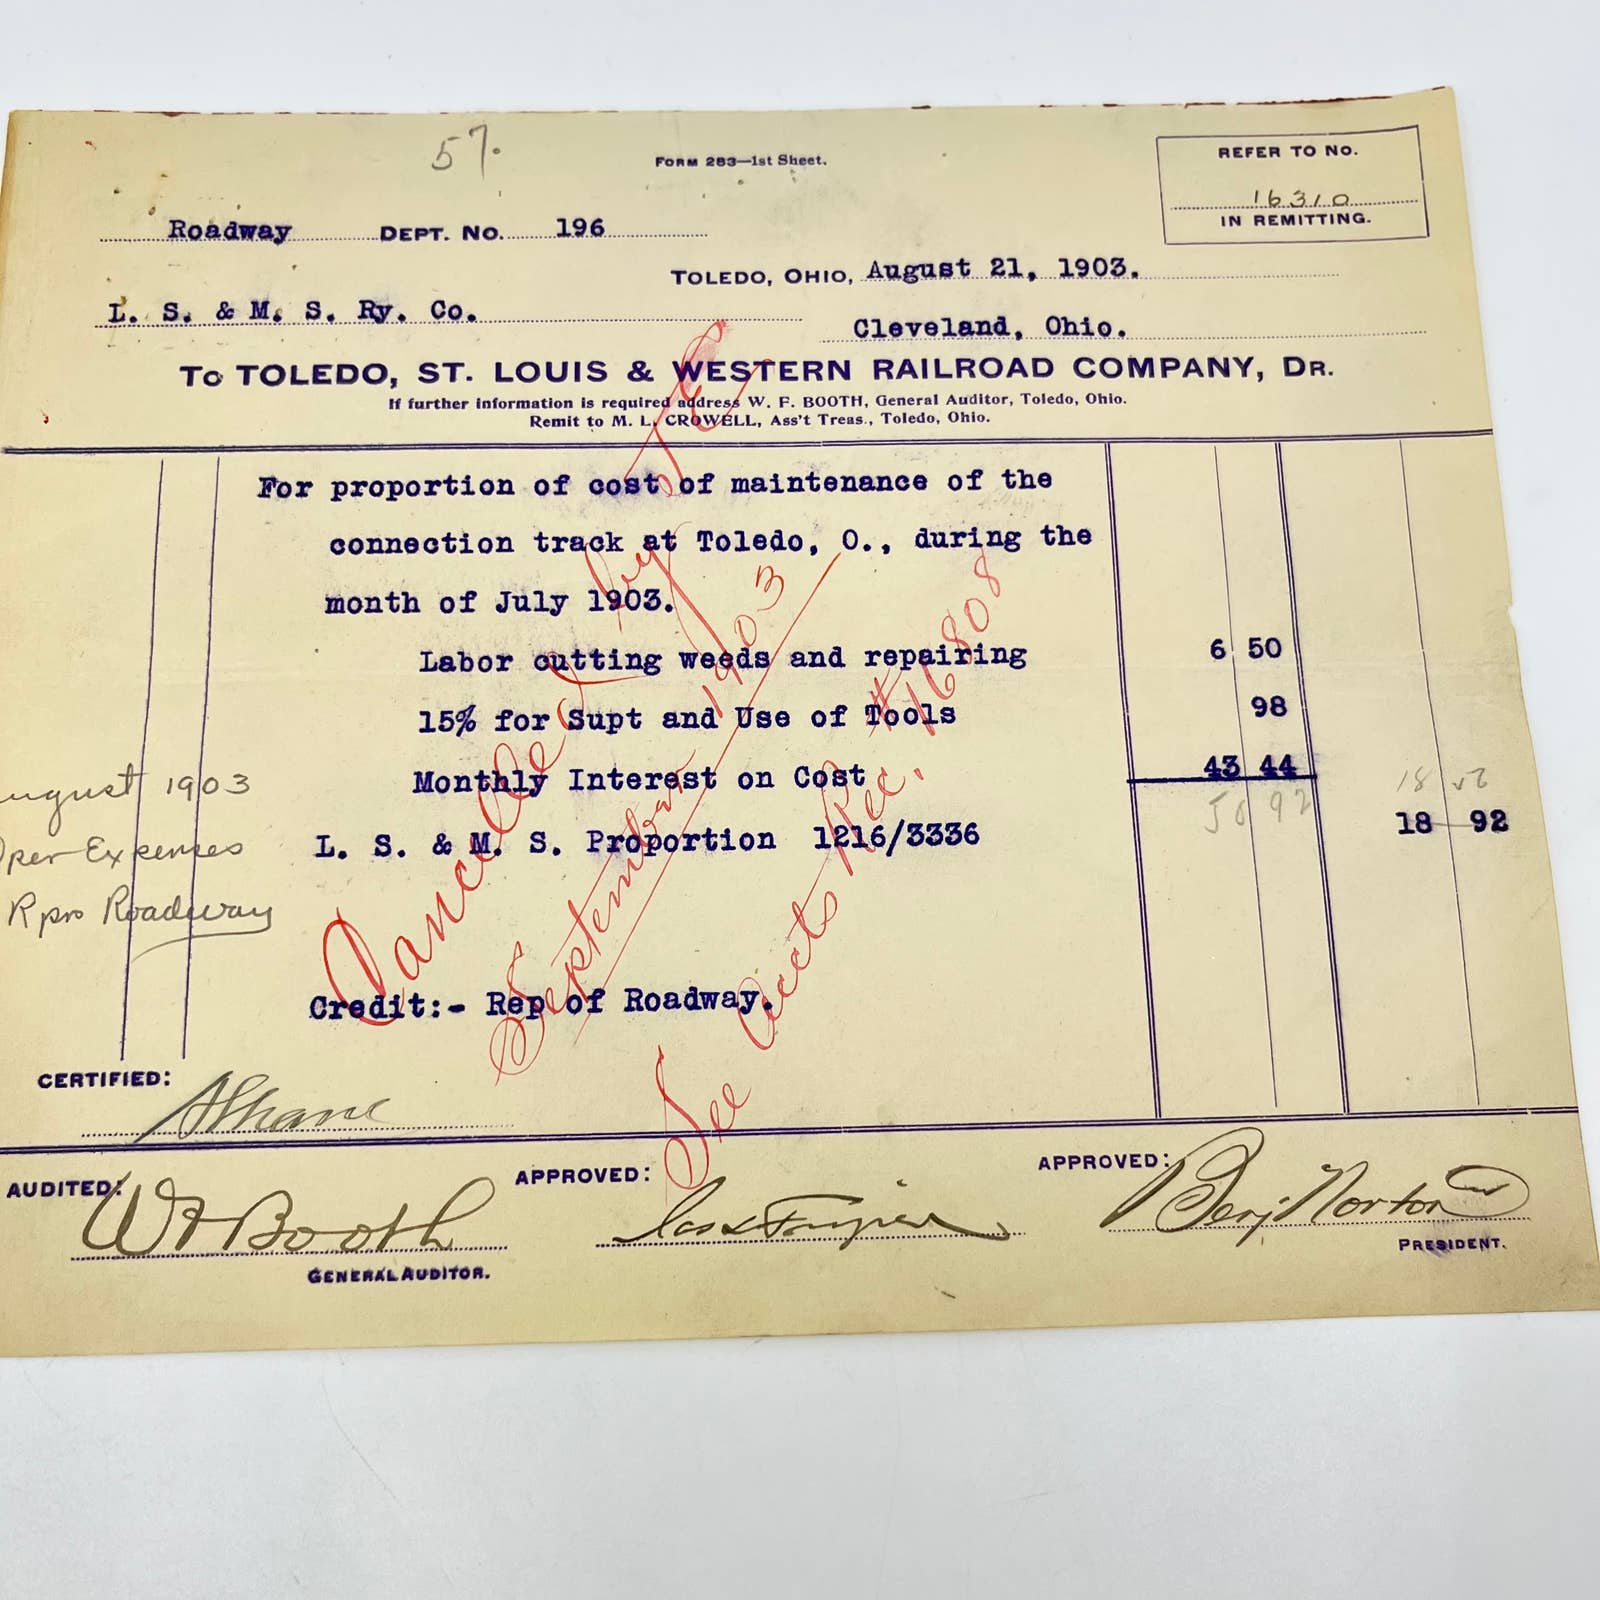 57.
FORM 283—1st Sheet.
REFER TO NO.
16310
IN REMITTING.
Roadway DEPT. NO. 196
TOLEDO, OHIO, August 21, 1903.
L. S. & M. S. Ry. Co.
Cleveland, Ohio.
To TOLEDO, ST. LOUIS & WESTERN RAILROAD COMPANY, DR.
If further information is required address W. F. BOOTH, General Auditor, Toledo, Ohio.
Remit to M. L. CROWELL, Ass't Treas., Toledo, Ohio.
For proportion of cost of maintenance of the
connection track at Toledo, O., during the
month of July 1903.
Labor cutting weeds and repairing 6 50
15% for Supt and Use of Tools 98
Monthly Interest on Cost 43 44
50 92
L. S. & M. S. Proportion 1216/3336 18 92
August 1903
Oper Expenses
Rprs Roadway
Cancelled by
September 1903
See Accts Rec. #16808
Credit:- Rep of Roadway.
CERTIFIED:
AUDITED: W F Booth
GENERAL AUDITOR.
APPROVED:
APPROVED: Benj Norton
PRESIDENT.